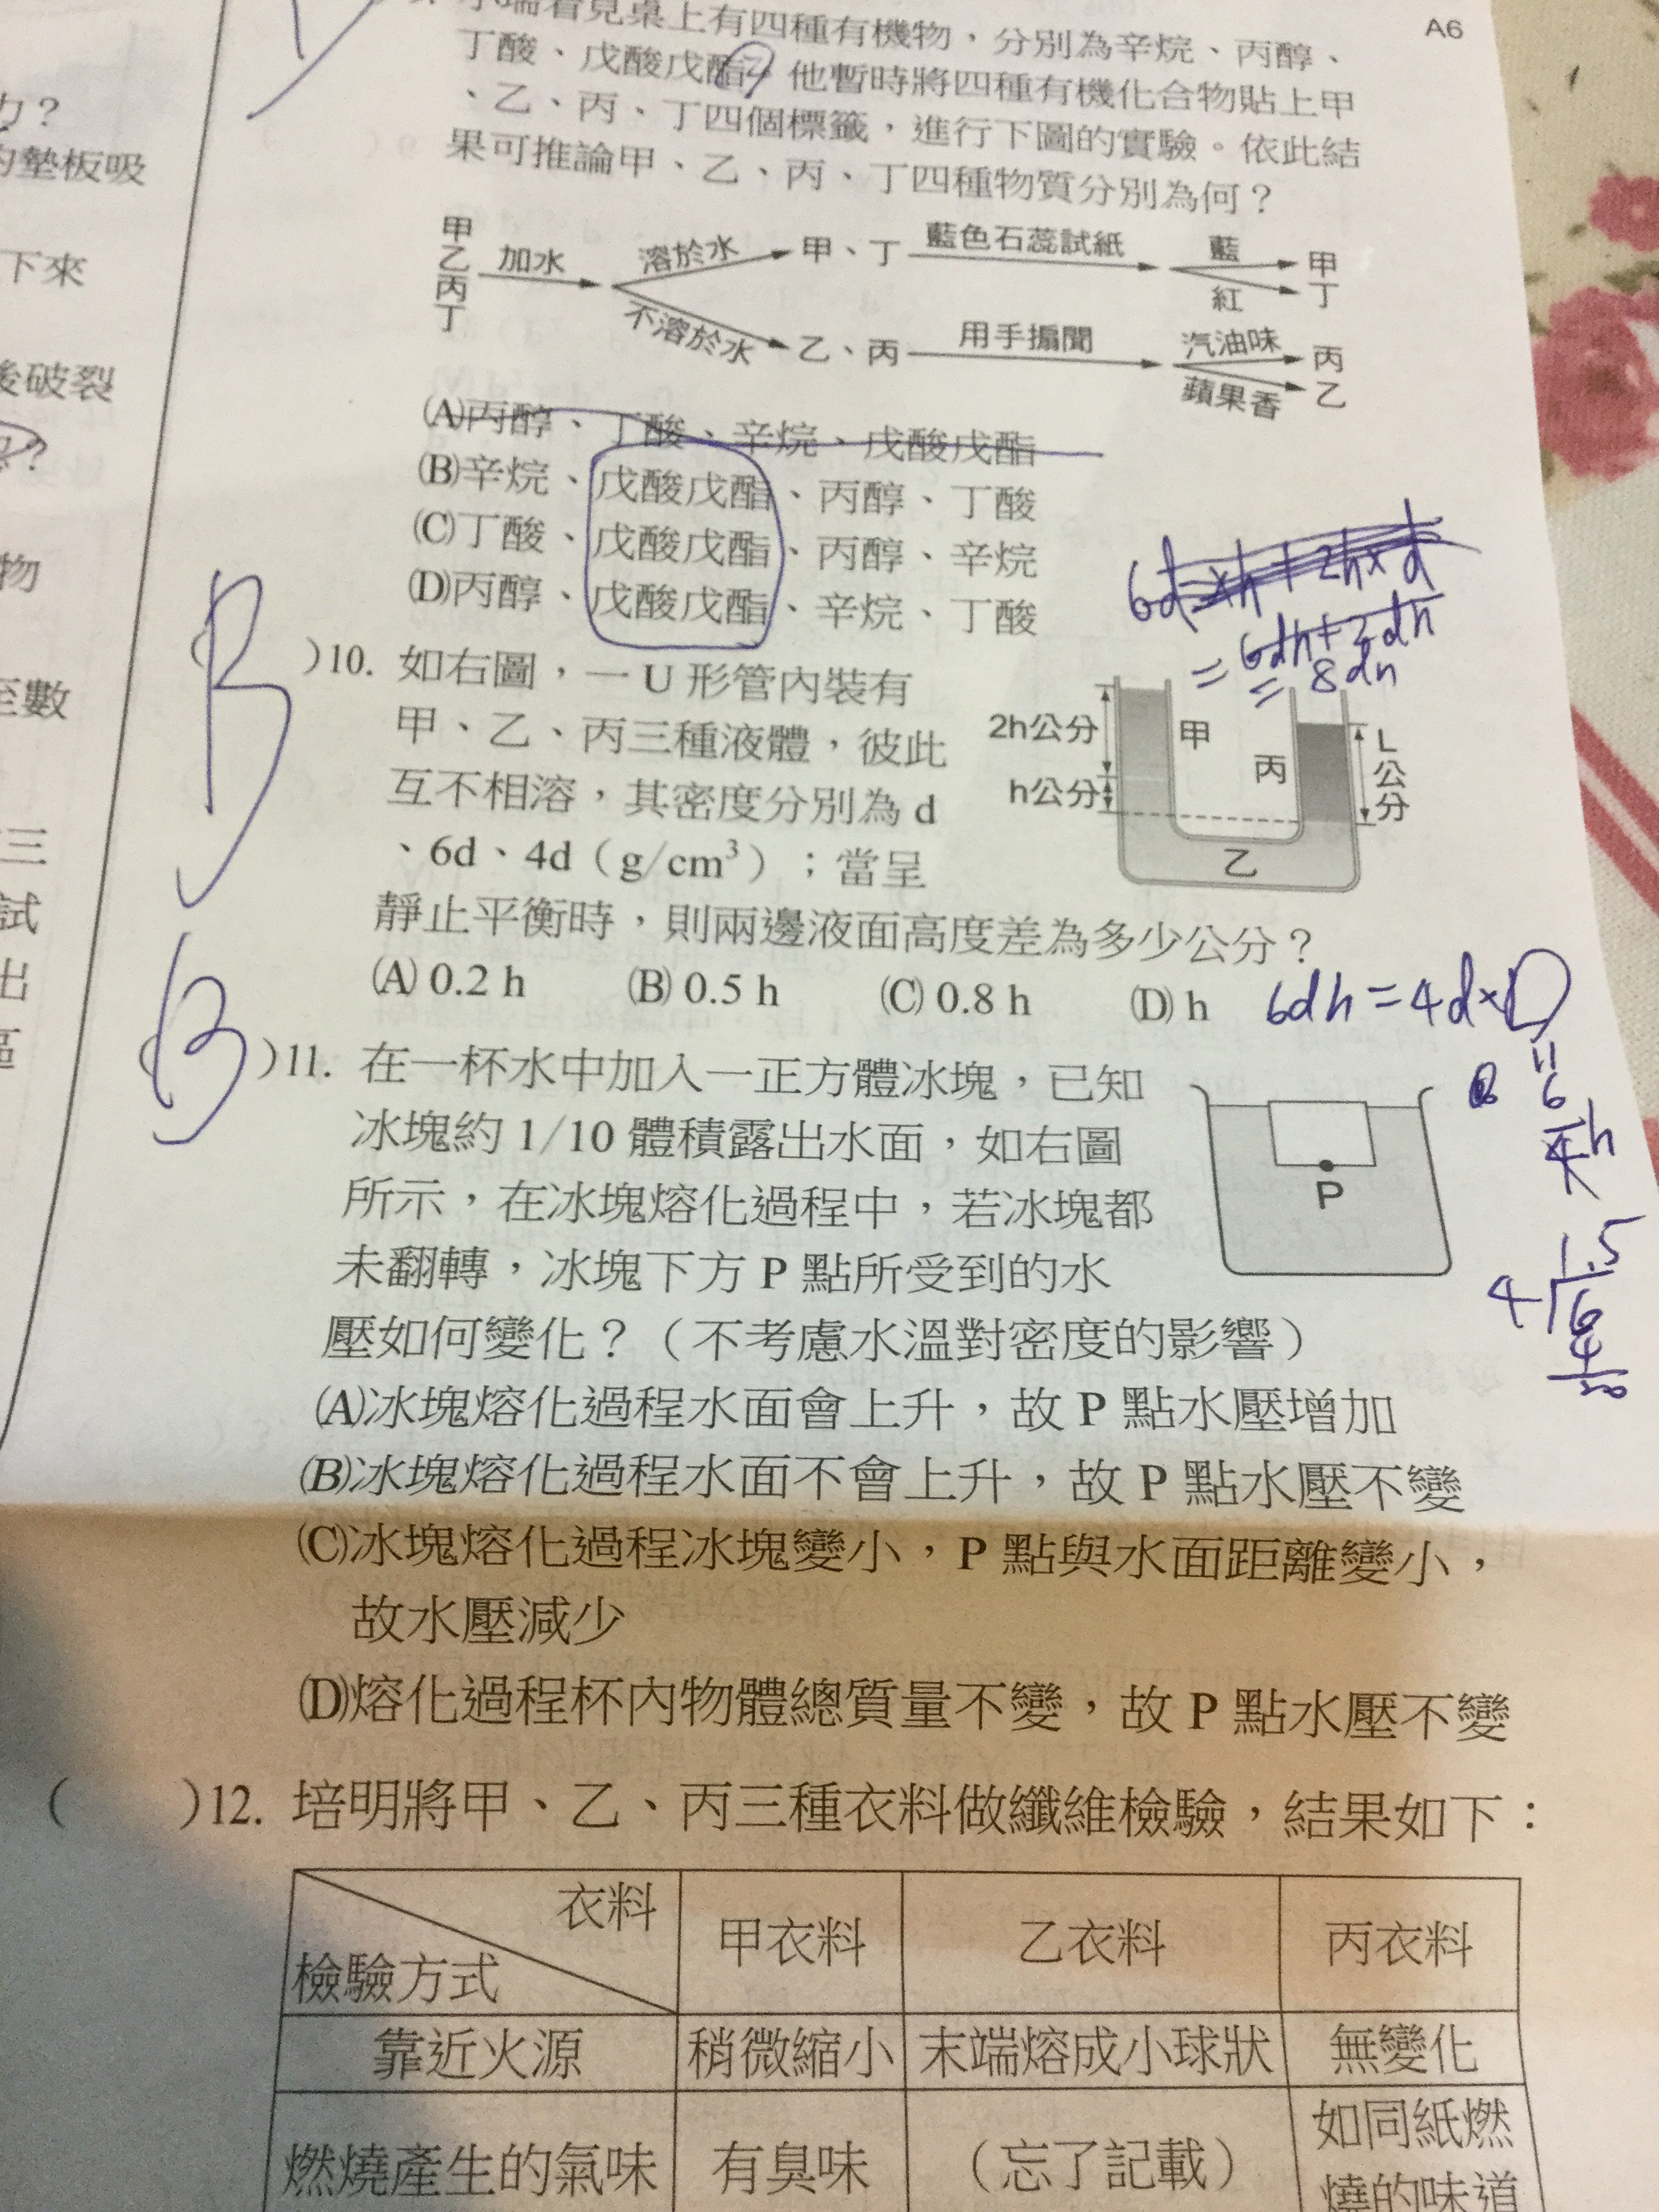 A6
小瑞看見桌上有四種有機物，分別為辛烷、丙醇、
丁酸、戊酸戊酯。他暫時將四種有機化合物貼上甲
、乙、丙、丁四個標籤，進行下圖的實驗。依此結
果可推論甲、乙、丙、丁四種物質分別為何？
甲
乙
丙
丁
加水
溶於水
甲、丁
藍色石蕊試紙
藍
甲
紅
丁
不溶於水
乙、丙
用手搧聞
汽油味
丙
蘋果香
乙
(A)丙醇、丁酸、辛烷、戊酸戊酯
(B)辛烷、戊酸戊酯、丙醇、丁酸
(C)丁酸、戊酸戊酯、丙醇、辛烷
(D)丙醇、戊酸戊酯、辛烷、丁酸
6d×h+2h×d
=6dh+2dh
=8dh
B
)10. 如右圖，一 U 形管內裝有
甲、乙、丙三種液體，彼此
互不相溶，其密度分別為 d
、6d、4d（g/cm³）；當呈
靜止平衡時，則兩邊液面高度差為多少公分？
(A) 0.2 h (B) 0.5 h (C) 0.8 h (D) h
2h公分
h公分
甲
丙
乙
L公分
6dh=4d×D
6
4 h
1.5
4 6
4
20
(B)11. 在一杯水中加入一正方體冰塊，已知
冰塊約 1/10 體積露出水面，如右圖
所示，在冰塊熔化過程中，若冰塊都
未翻轉，冰塊下方 P 點所受到的水
壓如何變化？（不考慮水溫對密度的影響）
P
(A)冰塊熔化過程水面會上升，故 P 點水壓增加
(B)冰塊熔化過程水面不會上升，故 P 點水壓不變
(C)冰塊熔化過程冰塊變小，P 點與水面距離變小，
故水壓減少
(D)熔化過程杯內物體總質量不變，故 P 點水壓不變
( )12. 培明將甲、乙、丙三種衣料做纖維檢驗，結果如下：
衣料
檢驗方式
甲衣料 乙衣料 丙衣料
靠近火源 稍微縮小 末端熔成小球狀 無變化
燃燒產生的氣味 有臭味 （忘了記載） 如同紙燃
燒的味道
力？
的墊板吸
下來
後破裂
?
物
至數
三
試
出
區